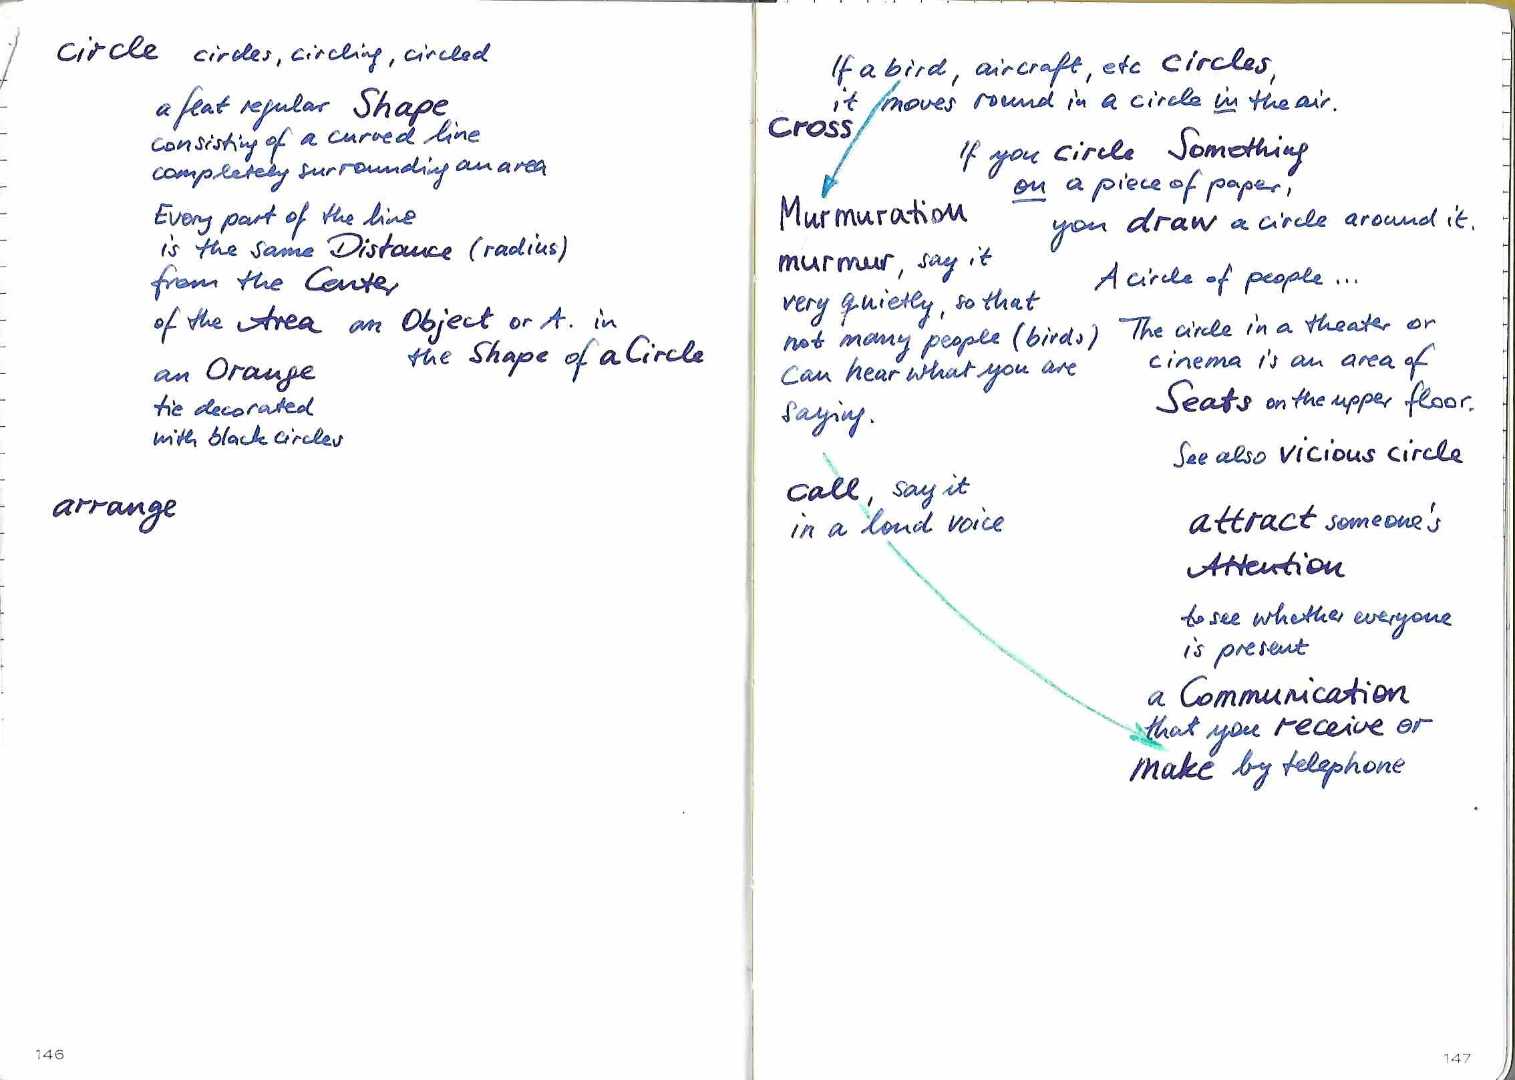 circle circles, circling, circled
a flat regular Shape
consisting of a curved line
completely surrounding an area
Every part of the line
is the same Distance (radius)
from the Center
of the Area an Object or A. in
the Shape of a Circle
an Orange
tie decorated
with black circles
arrange
146
If a bird, aircraft, etc circles,
it moves round in a circle in the air.
Cross
If you circle Something
on a piece of paper,
you draw a circle around it.
Murmuration
murmur, say it
very quietly, so that
not many people (birds)
can hear what you are
saying.
call, say it
in a loud voice
A circle of people ...
The circle in a theater or
cinema is an area of
Seats on the upper floor.
See also vicious circle
attract someone's
Attention
to see whether everyone
is present
a Communication
that you receive or
make by telephone
147